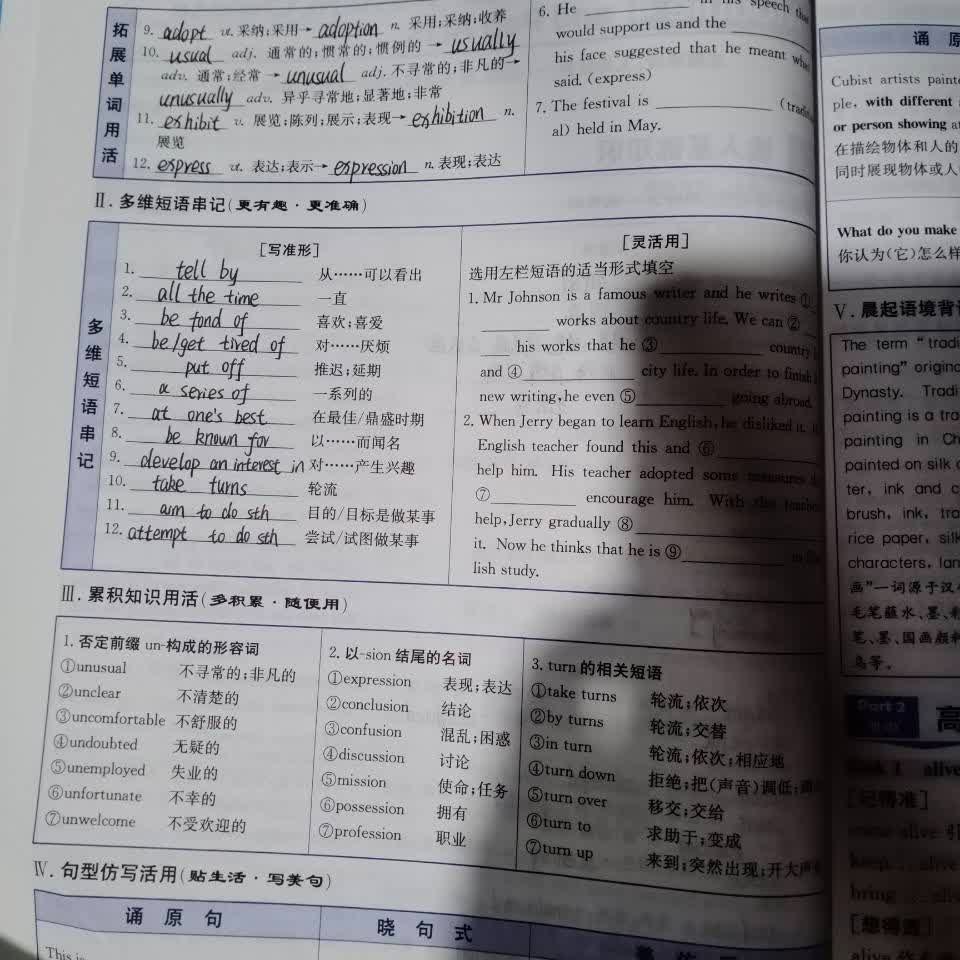 拓展单词用活
9. adopt vt.采纳;采用→ adoption n. 采用;采纳;收养
10. usual adj. 通常的;惯常的;惯例的 → usually
adv. 通常;经常 → unusual adj. 不寻常的;非凡的→
unusually adv. 异乎寻常地;显著地;非常
11. exhibit v. 展览;陈列;展示;表现→ exhibition n.
展览
12. express vt. 表达;表示→ expression n. 表现;表达
6. He ______ in his speech that
would support us and the ______
his face suggested that he meant what
said. (express)
7. The festival is ______ (tradi
al) held in May.
Ⅱ. 多维短语串记(更有趣·更准确)
多维短语串记
[写准形]
1. tell by 从……可以看出
2. all the time 一直
3. be fond of 喜欢;喜爱
4. be/get tired of 对……厌烦
5. put off 推迟;延期
6. a series of 一系列的
7. at one's best 在最佳/鼎盛时期
8. be known for 以……而闻名
9. develop an interest in 对……产生兴趣
10. take turns 轮流
11. aim to do sth 目的/目标是做某事
12. attempt to do sth 尝试/试图做某事
[灵活用]
选用左栏短语的适当形式填空
1. Mr Johnson is a famous writer and he writes ①
______ works about country life. We can ②
______ his works that he ③______ country
and ④______ city life. In order to finish
new writing, he even ⑤______ going abroad.
2. When Jerry began to learn English, he disliked it.
English teacher found this and ⑥______
help him. His teacher adopted some measures
⑦______ encourage him. With the teache
help, Jerry gradually ⑧______
it. Now he thinks that he is ⑨______
lish study.
Ⅲ. 累积知识用活(多积累·随便用)
1. 否定前缀 un-构成的形容词
①unusual 不寻常的;非凡的
②unclear 不清楚的
③uncomfortable 不舒服的
④undoubted 无疑的
⑤unemployed 失业的
⑥unfortunate 不幸的
⑦unwelcome 不受欢迎的
2. 以-sion 结尾的名词
①expression 表现;表达
②conclusion 结论
③confusion 混乱;困惑
④discussion 讨论
⑤mission 使命;任务
⑥possession 拥有
⑦profession 职业
3. turn 的相关短语
①take turns 轮流;依次
②by turns 轮流;交替
③in turn 轮流;依次;相应地
④turn down 拒绝;把(声音)调低;
⑤turn over 移交;交给
⑥turn to 求助于;变成
⑦turn up 来到;突然出现;开大声
Ⅳ. 句型仿写活用(贴生活·写美句)
诵原句
晓句式
This is
诵原
Cubist artists painte
ple, with different
or person showing at
在描绘物体和人的
同时展现物体或人
What do you make
你认为(它)怎么样
Ⅴ. 晨起语境背诵
The term "tradi
painting" origina
Dynasty. Tradi
painting is a tra
painting in Ch
painted on silk o
ter, ink and c
brush, ink, tra
rice paper, silk
characters, lan
画"一词源于汉
毛笔蘸水、墨、
笔、墨、国画颜料
鸟等。
Part 2
高
alive
[记得准]
come alive 引
keep ... alive
bring ... aliv
[想得透]
alive